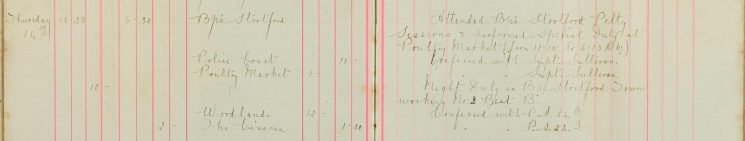 Thursday 11-30 6-30 Bp's Stortford Attended Bp's Stortford Petty
14th Sessions & performed Special Duty at
Poultry Market (from 11-10 to 5-10 P.M.)
Police Court 11 - Conferred with Supt. Sullivan.
Poultry Market 1 - " " Supt. Sullivan.
10 - Night Duty in Bp's Stortford Town
working No 3 Beat B.
Woodlands 12 - Conferred with P.S. 24 D
2 - The Cinema 1-30 " " P.S. 24 D